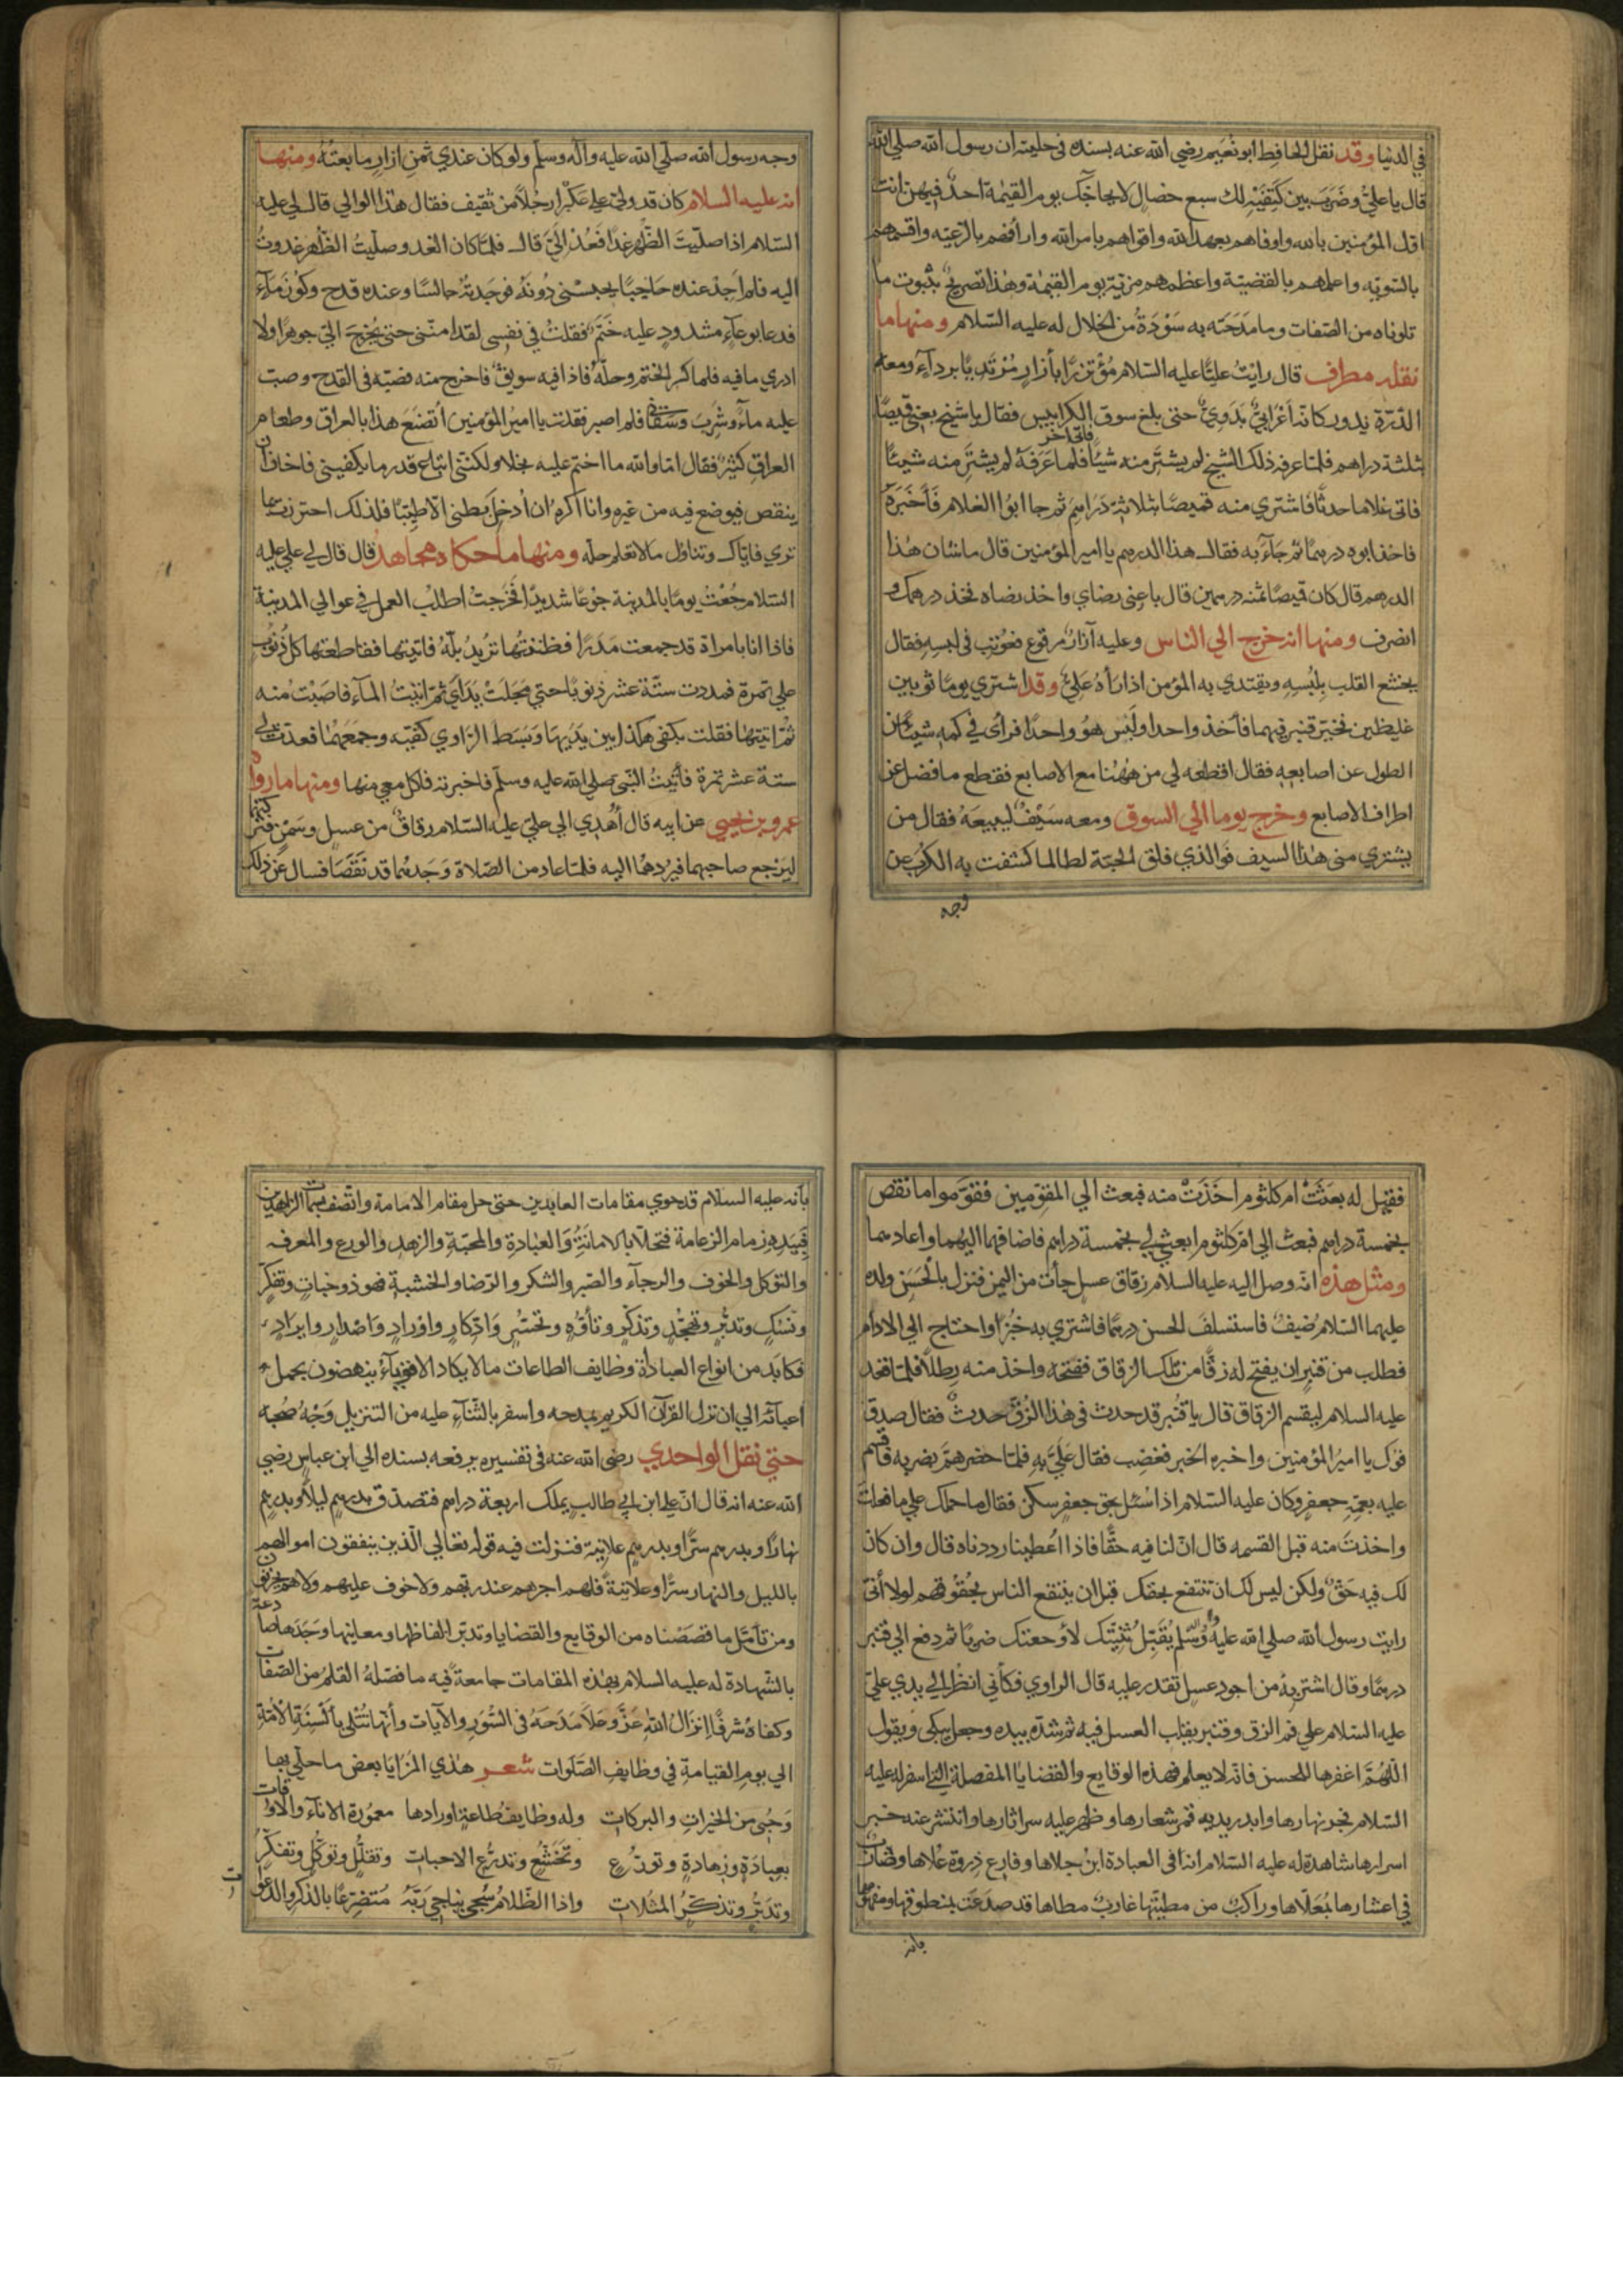 في الدنيا وقد نقل الحافظ ابو نُعَيم رضي الله عنه بسنده في حليته ان رسول الله صلي الله
قال يا عليّ وضَرَبَ بين كَتِفَيْهِ لك سبع خصال لا يحاجّك يوم القيٰمة احدٌ فيهن انت
اوّل المؤمنين بالله واوفاهم بعهد الله واقواهم بامر الله وارأفهم بالرّعيّه واقسمهم
بالسّويّه واعلمهم بالقضيّة واعظمهم مزيّة يوم القيٰمة وهٰذا تصريحٌ بثبوت ما
تلوناه من الصّفات وما مَدَحَتْه به سَوْدَةُ من الخلال له عليه السّلام ومنها ما
نقله مطرف قال رايتُ عليًّا عليه السّلام مُؤْتزرًا بأزارٍ مُرْتَدِيًا برداءٍ ومعه
الدّرّة يدور كانّه اَعْرَابيٌّ بَدَوِيٌّ حتى بلغ سوق الكرابيس فقال يا شيخ بعني قميصًا
بثلثة دراهم فلمّا عرفه ذلك الشيخ لم يشتَرِ منه شيئًا فاتى آخر فلما عَرَفَهُ لم يشترِ منه شيئًا
فاتى غلاما حدثًا فاشتري منه قميصًا بثلاثة دَرَاهِمَ ثم جا ابوا الغلام فَأَخْبَرَهُ
فاخذ ابوه درهمًا ثم جَاءَ به فقال هذا الدرهم يا امير المؤمنين قال ما شان هٰذا
الدرهم قال كان قميصًا ثمنه درهمين قال باعني رضاي واخذ رضاه فخذ درهمك و
انصرف ومنها انه خرج الي الناس وعليه آزارٌ مرقوع فعُوتِب في لبسِهِ فقال
يخشع القلب بِلُبْسِهِ ويقتدي به المؤمن اذا رَأهُ عَلَيَّ وقد اشتري يومًا ثوبين
غليظين فخيّر قنبر فيهما فأخذ واحدا ولَبِسَ هوُ واحدًا فرأى في كمه شيئًا من
الطول عن اصابعه فقال اقطعه لي من هٰهُنا مع الاصابع فقطع ما فضل عن
اطراف الاصابع وخرج يوما الي السوق ومعه سَيْفٌ ليبيعَهُ فقال من
يشتري مني هٰذا السيف فوالذي فلق الحبّة لطالما كشفت به الكَرْب عن
وجه
وجه رسول الله صلّي الله عليه وآله وسلّم ولو كان عندي ثمن ازارٍ ما بعتُهُ ومنها
انه عليه السلام كان قد ولّي علي عَكْبَرا رجُلاً من ثقيف فقال هٰذا الوالي قال لي عليه
السّلام اذا صلّيتَ الظّهر غدًا فَعُدْ الَيَّ قال فلمّا كان الغد وصلّيتُ الظّهر غدوتُ
اليه فلم اَجِدْ عنده حَاجِبًا يحبسُني دُونَهُ فوجدتُهُ جالسًا وعنده قدح وكوزُ مَآءٍ
فدعا بوعآءٍ مشدودٍ عليه خَتَمٌ فقلتُ في نفسي لقد امنّني حتى يُخرِجَ اليّ جوهرًا ولا
ادري ما فيه فلما كسر الختم وحلّهُ فاذا فيه سويقٌ فاخرج منه فصبّه في القدح وصبّ
عليه ماءً وشَرِبَ وسَقَاني فلم اصبر فقلت يا اميرُ المؤمنين أتصْنَع هذا بالعراق وطعام
العراقِ كثيرٌ فقال امّا والله ما اختم عليه بخلا ولكنّني ابتاع قدر ما يكفيني فاخاف ان
ينقص فيوضع فيه من غيره وانا اكره ان أُدخِل بطني الّا طيّبًا فلذلك احترزت بما
تري فاياك وتناوُل مالا تعلم حلّه ومنها ما حكاه مجاهد قال قال لي علي عليه
السّلام جُعْتُ يومًا بالمدينة جوعًا شديدًا فخَرَجتُ اطلُب العمل في عوالي المدينة
فاذا انا بامراة قد جمعت مَدَرًا فظننتُها تُريدُ بلّهُ فاتيتها فقاطعتها كلّ ذنوب
علي تمرة فمددت ستّة عشر ذنوبًا حتي مجلَتْ يَدَايَ ثمّ اتيتُ المآء فاصَبْتُ منه
ثمّ اتيتها فقلت بكفي هكذا بين يَدَيها وَبَسَطَ الرّاوي كفّيه وجمَعَهُما فعدّت لي
ستة عشر تمرة فأتيتُ النّبي صلي الله عليه وسلّم فاخبرته فاكل معي منها ومنها ما رواه
عمرو بن يحيي عن ابيه قال أُهْدِي الي عليّ عليه السّلام زقاقُ من عسلٍ وسَمْنٍ
ليَرْجع صاحبهما فيردّهما اليه فلمّا عاد من الصّلاة وَجَدهُما قد نَقَصَا فسال عَن ذلك
فقيل له بعَثَتْ ام كلثوم اخَذَتْ منه فبعث الي المقوّمين فقوّموا ما نقص
بخمسة دراهم فبعث الي امّ كلثوم ابعثي لي بخمسة دراهم فاضافها اليهما واعادهما
ومثل هذه انّه وصل اليه عليه السلام زقاق عسل جأت من اليمن فنزل بالحَسَن ولده
عليهما السّلامُ ضيفٌ فاستسلفَ الحسن درهمًا فاشتري به خبزًا واحتاج الي الادام
فطلب من قنبرٍ ان يفتح له زقًّا من تلك الزقاق ففتحه واخذ منه رطلًا فلمّا قعد
عليه السلام ليقسم الزقاق قال يا قُنْبر قد حدث في هٰذا الزقّ حدثٌ فقال صدق
فوك يا اميرُ المؤمنين واخبره الخبر فغضِب فقال عَلَيَّ بِهِ فلمّا حضر همّ بضربه فاقسم
عليه بعمّهِ جعفرٍ وكان عليه السّلام اذا سُئِل بحق جعفرٍ سكن فقال ما حملك علي ما فعلت
واخذتَ منه قبل القسمه قال انّ لنا فيه حقًّا فاذا اُعطينا رددناه قال وان كان
لك فيه حَقٌّ ولكن ليس لك ان تنتفع بحقك قبل ان ينتفع الناس بحُقوقهم لولا أنّي
رايت رسول الله صلي الله عليه وآله وسلم يُقبّل ثنيّتَك لأوجعتك ضربًا ثم دفع الي قنبر
درهمًا وقال اشتر بهُ من اجود عسلٍ تقدر عليه قال الراوي فكأني انظُر الي يدي عليّ
عليه السّلام علي فم الزق وقنبر يقلب العسل فيه ثم شدّه بيده وجعل يبكي ويقول
اللّٰهُمّ اغفرها للحسن فانه لا يعلم فهذه الوقايع والقضايا المفصلة التي اسفر له عليه
السّلام فجر نهارها وابدر بديه قمر شعارها وظهر عليه سراثارها وانتشر عنه خبر
اسرارها شاهدة له عليه السّلام انه في العبادة ابنُ جلاها وفارع ذروة عُلاها وضارب
في اعشارها بمُعَلّاها وراكبٌ من مطيّتها غاربٌ مطاها قد صَدَعَتْ بمنطوقها ومفهومها
بانه
بأنه عليه السلام قد حوي مقامات العابدين حتى حل مقام الامامة واتّصف بسمات الزاهدين
فبيَدِهِ زمام الزعامة فتحلّا بالامانَةُ وَالعبادة والمحبّةِ والزهدِ والورع والمعرفه
والتوكل والخوف والرجآء والصّبر والشكر والرّضا والخشيةِ فهو ذو خبات وتفكّرٍ
ونُسُكٍ وتدبّرٍ وتهجّدٍ وتذكّرٍ وتأوّهٍ وتحسّرٍ وَاذكارٍ واوْرادٍ وَاصْدارٍ وايرادٍ
فكابَد من انواع العبادة وظايف الطاعات مالا يكاد الاقوياءُ ينهضون بحمل
اَعبآئه الي ان نزل القرآن الكريم بمدحه واسفر بالثّنآءِ عليه من التنزيل وَجْهُ صُبحه
حتي نقل الواحدي رضي الله عنه في تفسيره يرفعه بسنده الي ابن عباسٍ رضي
الله عنه انه قال انّ عليا ابن ابي طالبٍ يملك اربعة دراهم فتصدّق بدرهمٍ ليلًا وبدرهم
نهارًا وبدرهم سرًّا وبدرهمٍ علانيّة فنزلت فيه قوله تعالي الّذين ينفقون اموالهم
بالليل والنهار سرًّا وعلانيّة فلهم اجرهم عند ربّهم ولا خوف عليهم ولا هم يحزنون
ومن تأمّل ما قصَصْناه من الوقايع والقضايا وتدبّر الفاظها ومعانيها وجَدَها صادعة
بالشّهادة له عليه السلام بهٰذه المقامات جامعةً فيه ما فصّلهُ القلمُ من الصّفات
وكفاهُ شرفًا إنزالُ اللّٰه عَزّ وجَلّا مَدَحَهُ في السُّوَرِ والآيات وأنّها تُتْلي بألْسِنَةِ الأمّة
الي يومِ القيامةِ في وظايف الصّلَوات شعر هٰذي المَزَايا بعض ما حلّي بها
وَحُبى من الخيراتِ والبركات وله وظايف طاعةٍ اورادها معمُورة الاناء والاوقات
بعبادَةٍ وزهادةٍ وتورّعٍ وتخشّعٍ وتدرّعِ الاحبات وتقلّلٍ وتوكّلٍ وتفكّرٍ
وتدَبّرٍ وتذكّرُ المثُلات واذا الظّلامُ سُجي يناجي رَبَّهُ مُتضرّعًا بالذكرِ والدّعوات